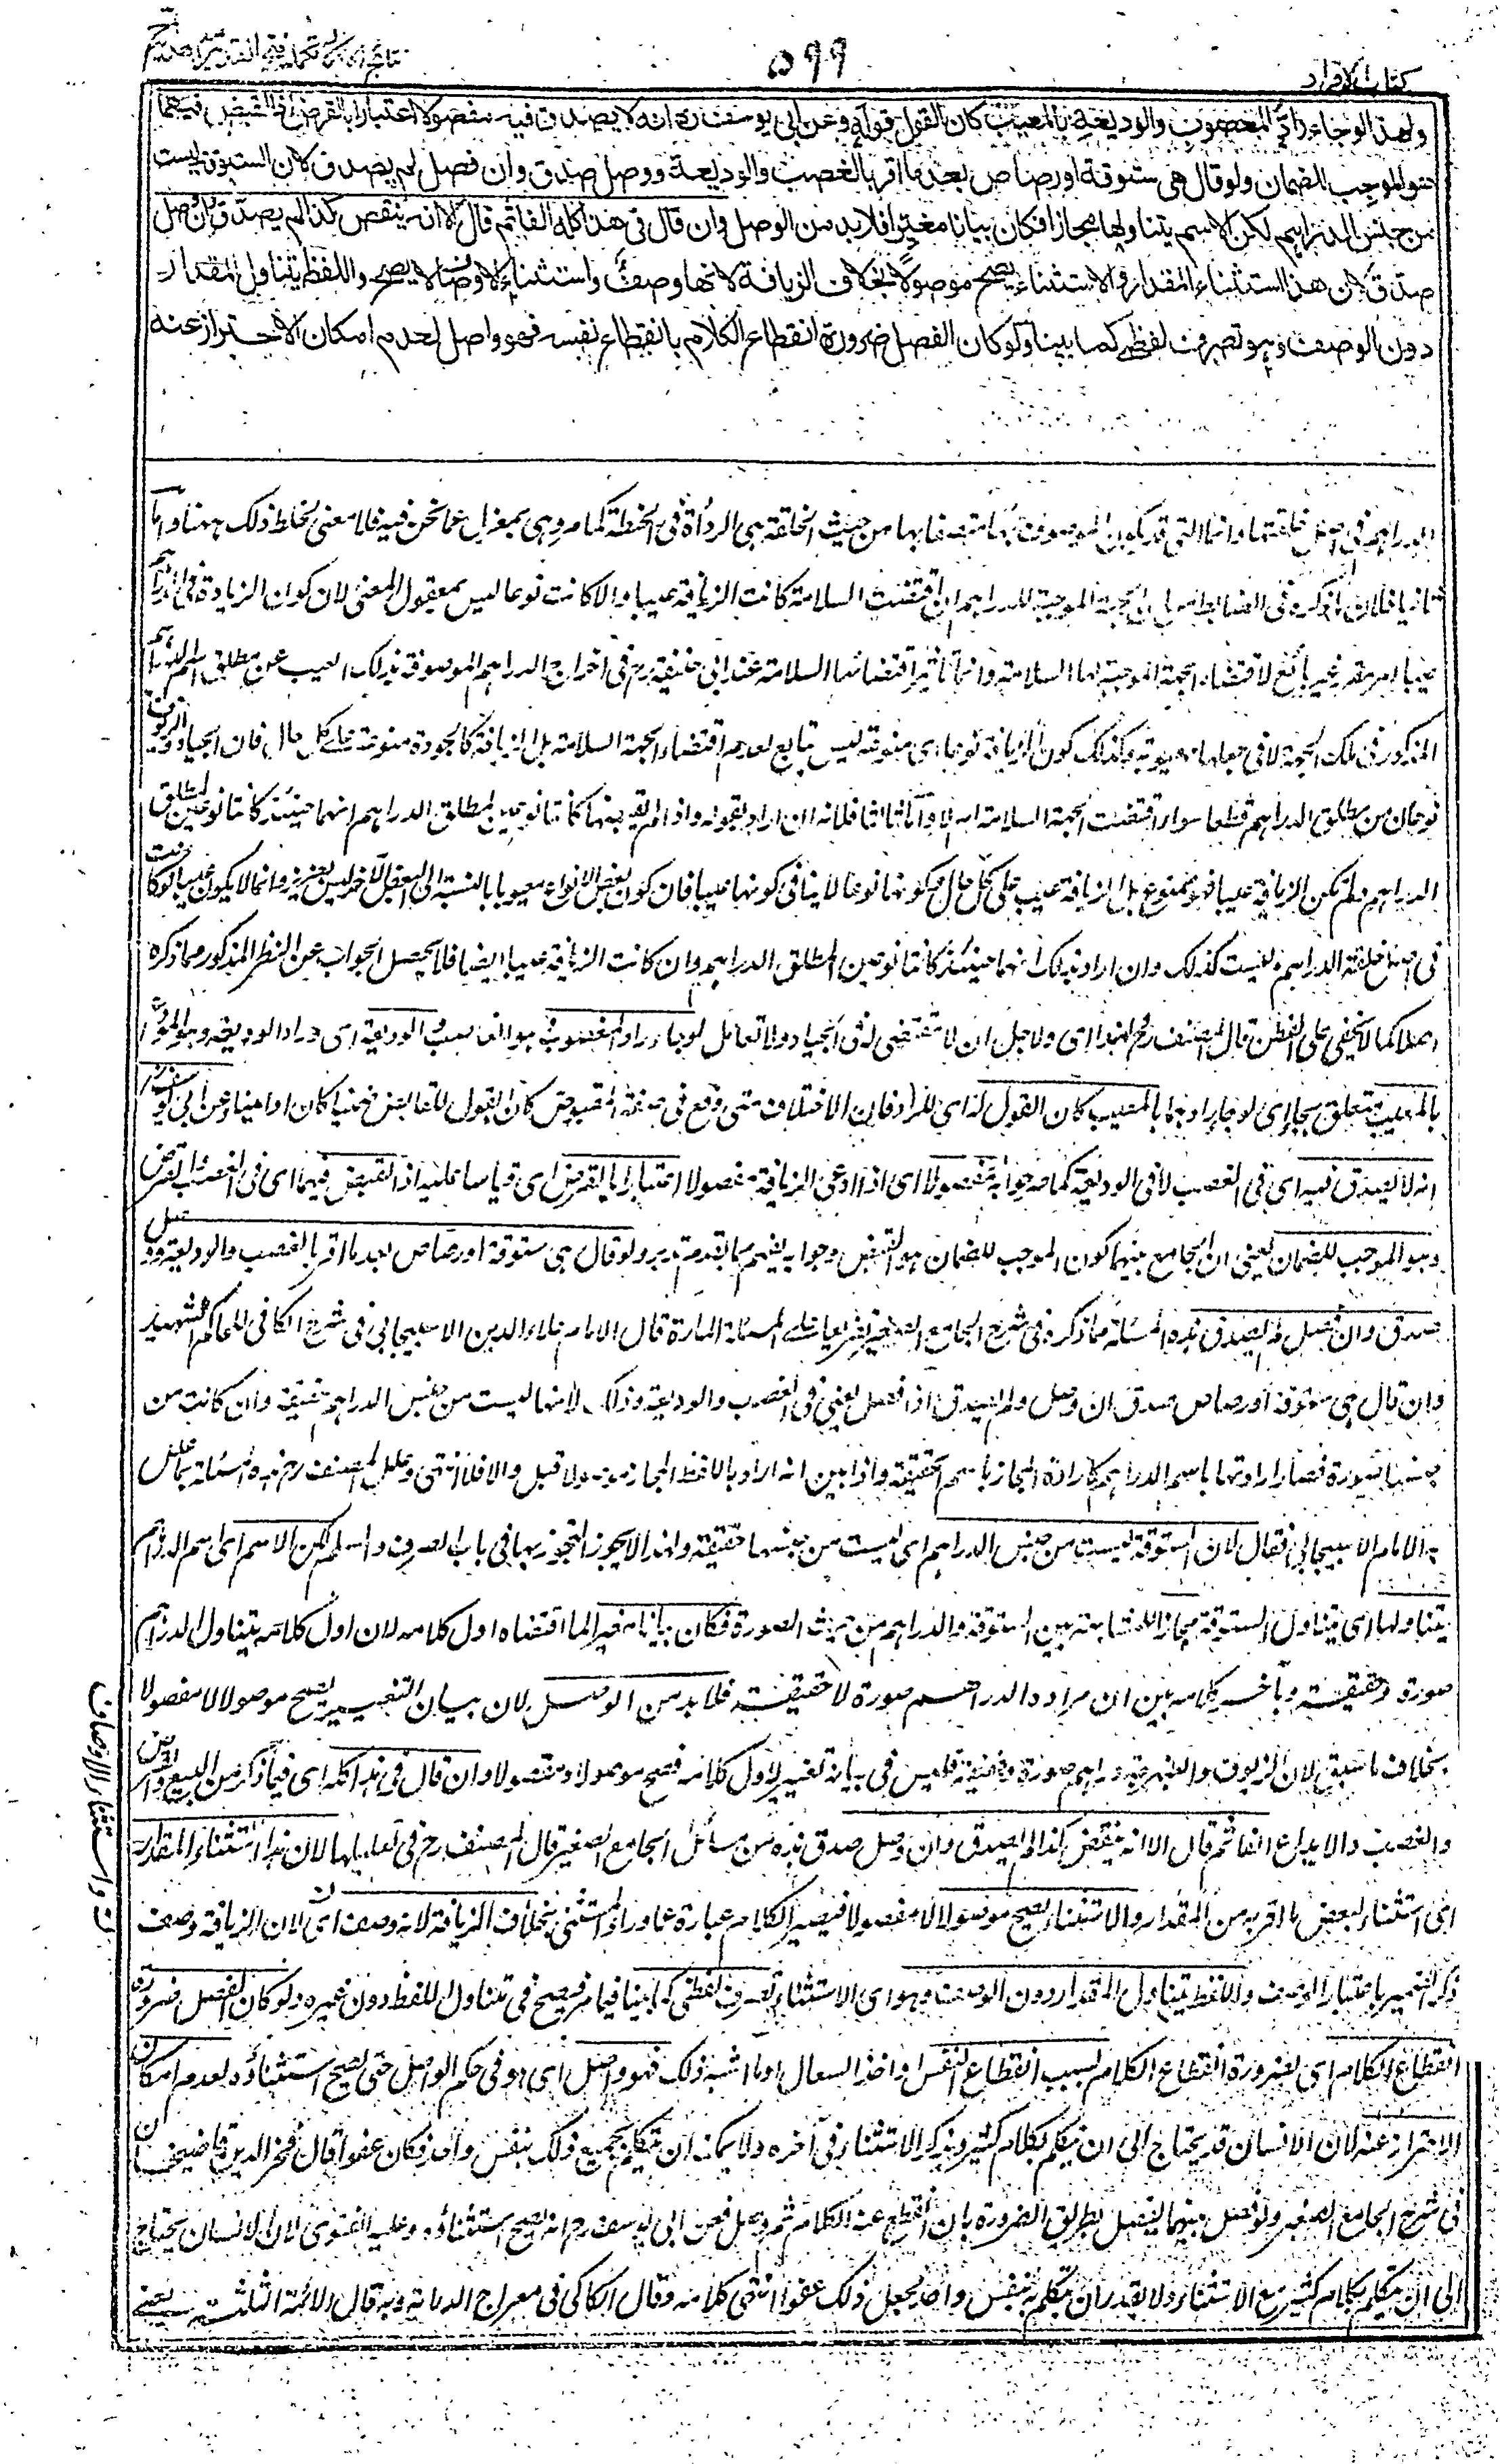 كتاب الاقرار
٥٩٩
نتائج الافكار تكملة فتح القدير
ولهذا لو جاء راد المغصوب والوديعة بالمعيب كان القول قوله وعن ابي يوسف ره انه لا يصدق فيه مفصولا اعتبارا بالقرض اذ القبض فيهما
هو الموجب للضمان ولو قال هي ستوقة او رصاص بعد ما اقر بالغصب والوديعة ووصل صدق وان فصل لم يصدق لان الستوقة ليست
من جنس الدراهم لكن الاسم يتناولها مجازا فكان بيانا مغيرا فلا بد من الوصل وان قال في هذا كله الفا ثم قال الا انه ينقص كذا لم يصدق وان وصل
صدق لان هذا استثناء المقدار والاستثناء يصح موصولا بخلاف الزيافة لانها وصف واستثناء الاوصاف لا يصح واللفظ يتناول المقدار
دون الوصف وهو تصرف لفظي كما بينا ولو كان الفصل ضرورة انقطاع الكلام بانقطاع نفسه فهو واصل لعدم امكان الاحتراز عنه
الدراهم في اصل خلقتها وانما التي قد يكون الموصوف بها متصفا بها من حيث الخلقة هي الرداءة في الحنطة كما مر وهي بمعزل عما نحن فيه فلا معنى لخلط ذلك ههنا واما
ثانيا فلان ما ذكره في الضابطة من ان الجهة الموجبة للدراهم ان اقتضت السلامة كانت الزيافة عيبا والا كانت نوعا ليس بمعقول المعنى لان كون الزيافة في الدراهم
عيبا امر مقرر غير تابع لاقتضاء الجهة الموجبة لها السلامة وانما تأثير اقتضائها السلامة عند ابي حنيفة رح في اخراج الدراهم الموصوفة بذلك العيب عن مطلق اسم الدراهم
المذكور في تلك الجهة لا في جعلها معيوبة وكذلك كون الزيافة نوعا اي منوعة ليس بتابع لعدم اقتضاء الجهة السلامة بل الزيافة كالجودة منوعة على كل حال فان الجياد والزيوف
نوعان من مطلق الدراهم قطعا سواء اقتضت الجهة السلامة ام لا واما ثالثا فلانه ان اراد بقوله واذا لم يقتضها كانتا نوعين لمطلق الدراهم انهما حينئذ كانتا نوعين لمطلق
الدراهم ولم تكن الزيافة عيبا فهو ممنوع بل الزيافة عيب على كل حال وكونها نوعا لا ينافي كونها عيبا فان كون بعض الانواع معيوبا بالنسبة الى البعض الآخر ليس بعزيز وانما لا يكون عيبا لو كانت
في اصل خلقة الدراهم وليست كذلك وان اراد بذلك انهما حينئذ كانتا نوعين لمطلق الدراهم وان كانت الزيافة عيبا ايضا فلا يحصل الجواب عن النظر المذكور مما ذكره
اصلا كما لا يخفى على الفطن قال المصنف رح ولهذا اي ولاجل ان لا مقتضى له في الجياد ولا تعامل لو جاء راد المغصوب هو الغاصب والوديعة اي وراد الوديعة وهو المودع
بالمعيب متعلق بجاء اي لو جاء رادهما بالمعيب كان القول له اي للراد فان الاختلاف متى وقع في صفة المقبوض كان القول للقابض ضمينا كان او امينا وعن ابي يوسف رح
انه لا يصدق فيه اي في الغصب لا في الوديعة كما صرحوا به مفصولا اي اذا ادعى الزيافة مفصولا اعتبارا بالقرض اي قياسا عليه اذ القبض فيهما اي في الغصب والقرض
وهو الموجب للضمان يعني ان الجامع بينهما كون الموجب للضمان هو القبض وجوابه يفهم مما تقدم تدبر ولو قال هي ستوقة او رصاص بعد ما اقر بالغصب والوديعة ووصل
صدق وان فصل لم يصدق هذه المسألة مما ذكره في شرح الجامع الصغير تفريعا على المسألة المارة قال الامام علاء الدين الاسبيجابي في شرح الكافي للحاكم الشهيد
وان قال هي ستوقة او رصاص صدق ان وصل ولم يصدق اذا فصل يعني في الغصب والوديعة وذلك لانها ليست من جنس الدراهم حقيقة وان كانت من
جنسها صورة فصار ارادتها باسم الدراهم كارادة المجاز باسم الحقيقة واذا بين انه اراد باللفظ المجاز موصولا قبل والا فلا انتهى وعلل المصنف رح هذه المسألة بما علل
به الامام الاسبيجابي فقال لان الستوقة ليست من جنس الدراهم اي ليست من جنسها حقيقة ولهذا لا يجوز التجوز بها في باب الصرف والسلم لكن الاسم اي اسم الدراهم
يتناولها اي يتناول الستوقة مجازا للمشابهة بين الستوقة والدراهم من حيث الصورة فكان بيانا مغيرا لما اقتضاه اول كلامه لان اول كلامه يتناول الدراهم
صورة وحقيقة وبآخر كلامه بين ان مراده الدراهم صورة لا حقيقة فلا بد من الوصل لان بيان التغيير يصح موصولا لا مفصولا
بخلاف ما سبق لان الزيوف والنبهرجة دراهم صورة وحقيقة فليس في بيانه تغيير لاول كلامه فصح موصولا ومفصولا وان قال في هذا كله اي فيما ذكر من البيع والقرض
والغصب والايداع الفا ثم قال الا انه ينقص كذا لم يصدق وان وصل صدق هذه من مسائل الجامع الصغير قال المصنف رح في تعليلها لان هذا استثناء المقدار
اي استثناء لبعض ما اقر به من المقدار والاستثناء يصح موصولا لا مفصولا فيصير الكلام عبارة عما وراء المستثنى بخلاف الزيافة لانه وصف اي لان الزيافة وصف
ذكر الضمير باعتبار الوصف واللفظ يتناول المقدار دون الوصف وهو اي الاستثناء تصرف لفظي كما بينا فيما مر فيصح في تناول اللفظ دون غيره ولو كان الفصل ضرورة
انقطاع الكلام اي لضرورة انقطاع الكلام بسبب انقطاع النفس او اخذ السعال او ما اشبه ذلك فهو واصل اي هو في حكم الواصل حتى يصح استثناؤه لعدم امكان
الاحتراز عنه لان الانسان قد يحتاج الى ان يتكلم بكلام كثير ويذكر الاستثناء في آخره ولا يمكنه ان يتكلم بجميع ذلك بنفس واحد فكان عفوا قال فخر الدين قاضيخان
في شرح الجامع الصغير ولو فصل بينهما لفصل بطريق الضرورة بان انقطع عنه الكلام ثم وصل فعن ابي يوسف رح انه يصح استثناؤه وعليه الفتوى لان الانسان يحتاج
الى ان يتكلم بكلام كثير مع الاستثناء ولا يقدر ان يتكلم به بنفس واحد يجعل ذلك عفوا انتهى كلامه وقال الكاكي في معراج الدراية وبه قال الائمة الثلثة يعني